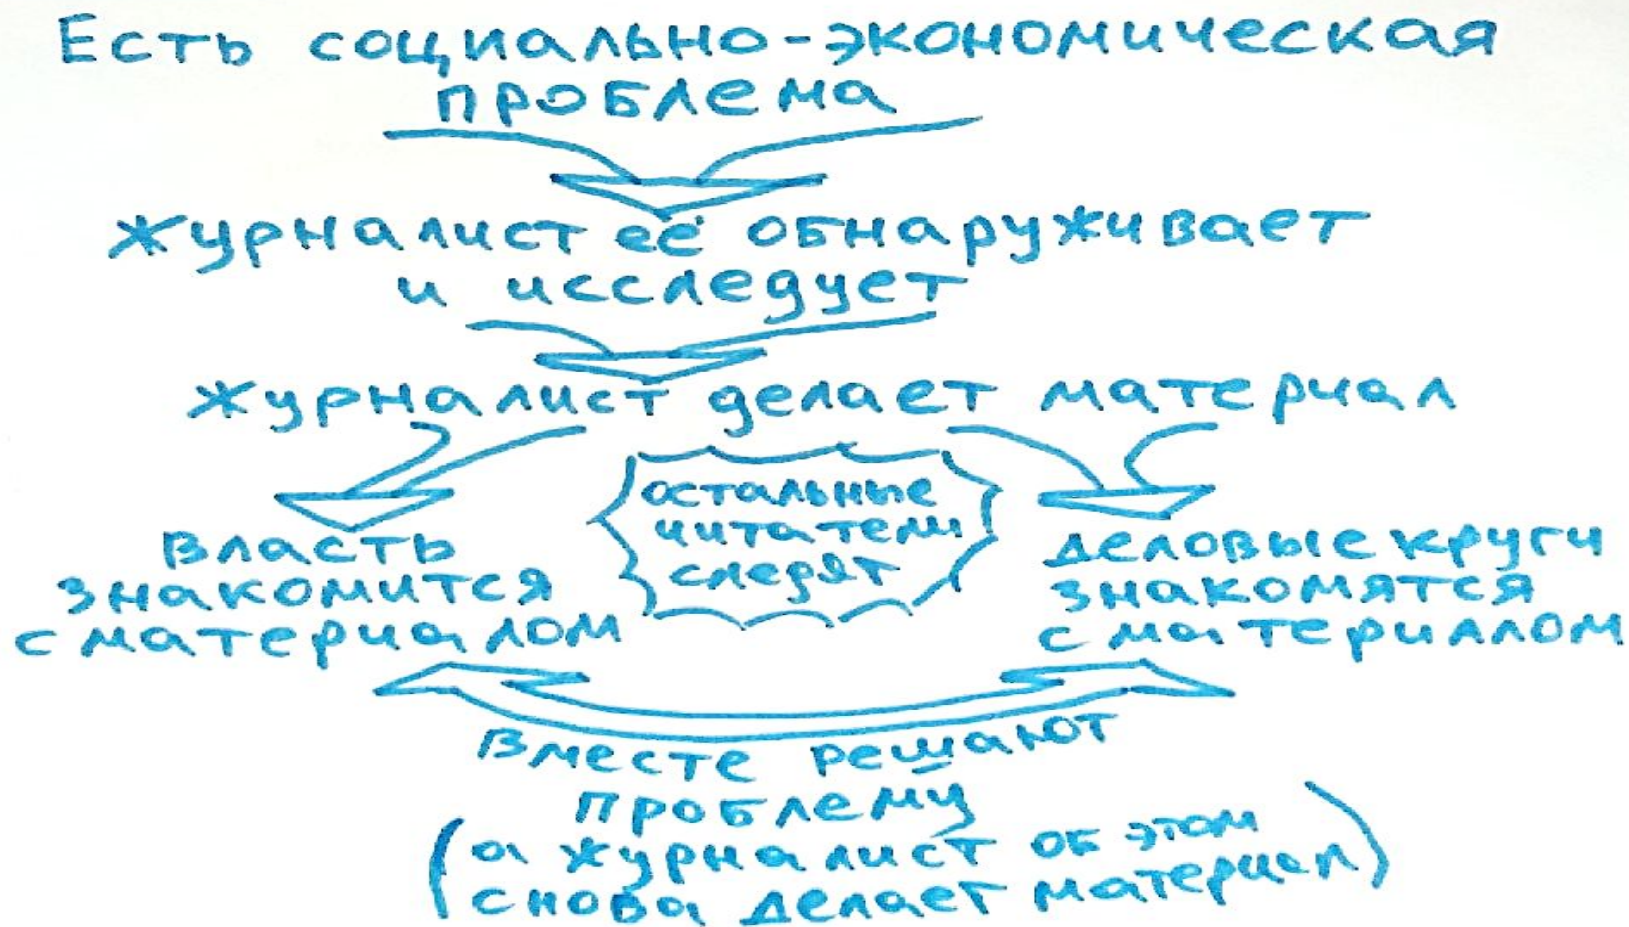 Есть социально-экономическая
проблема
журналист её обнаруживает
и исследует
журналист делает материал
остальные
читатели
следят
Власть
знакомится
с материалом
деловые круги
знакомятся
с материалом
Вместе решают
проблему
(а журналист об этом
снова делает материал)